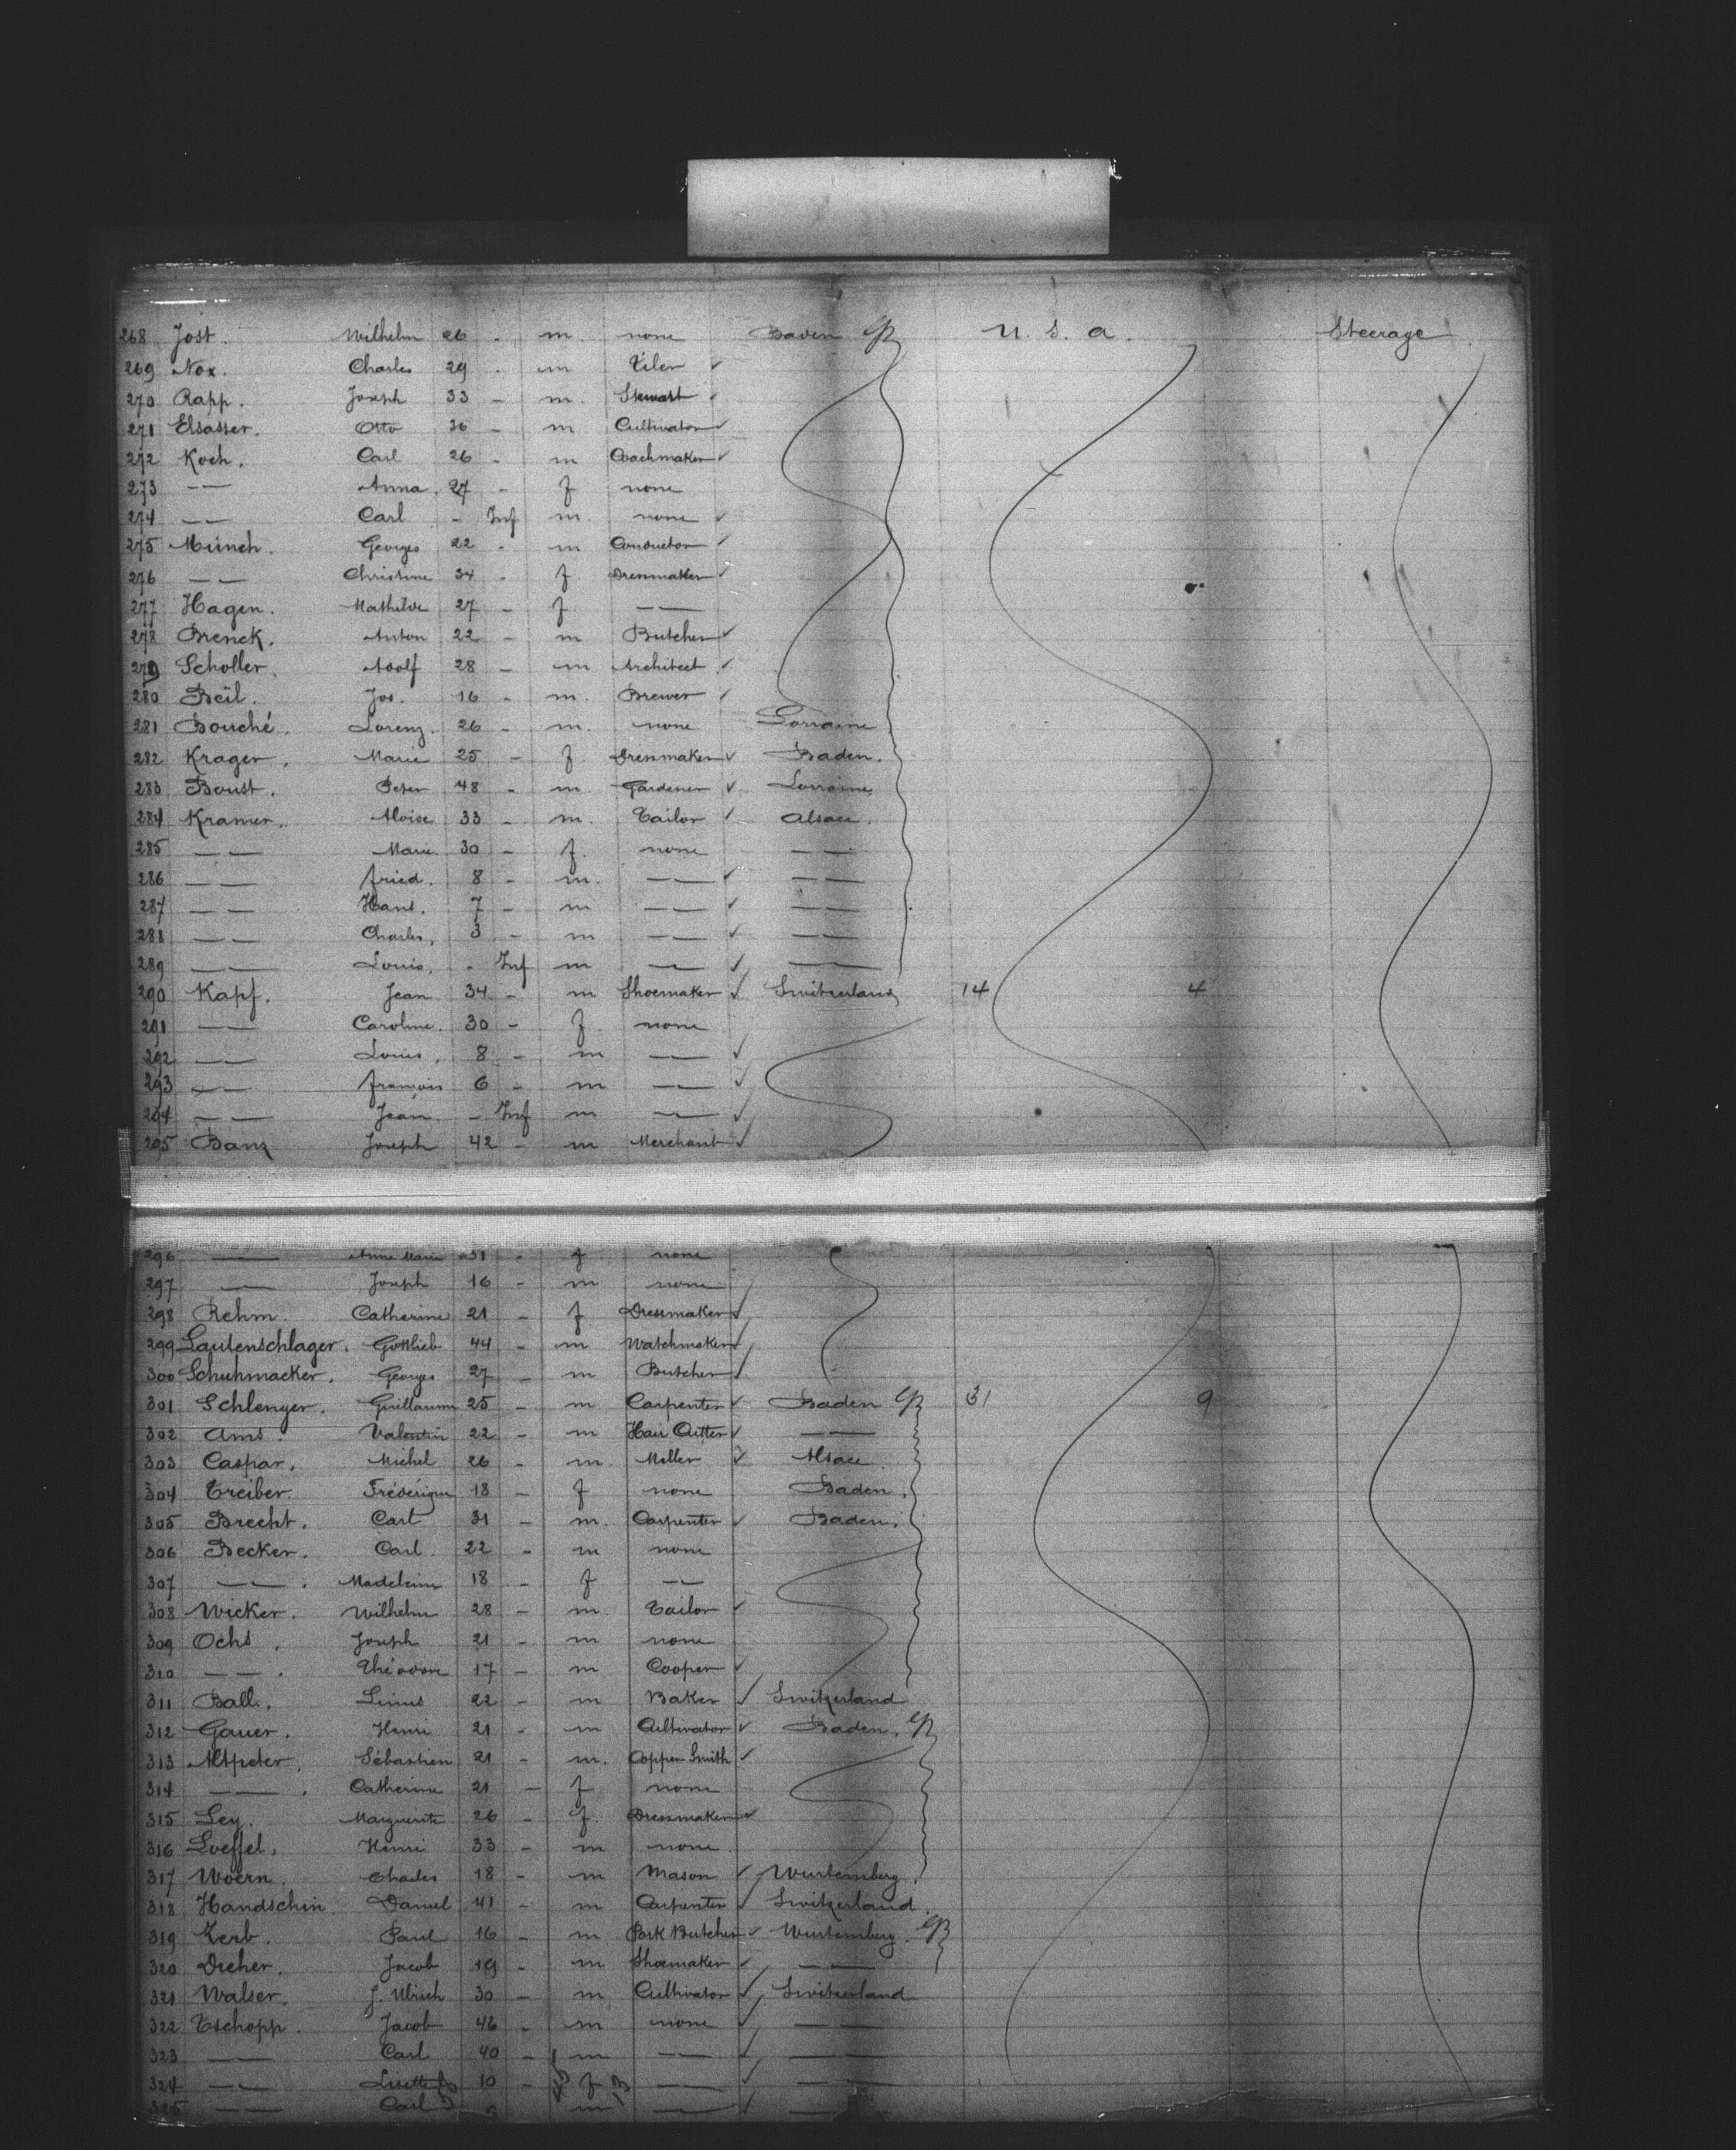 268 Jost. Wilhelm 26 - m. none Baden U. S. a. Steerage
269 Nox. Charles 29 - m Tiler ✓
270 Rapp. Joseph 33 - m. Stewart ✓
271 Elsasser. Otto 36 - m Cultivator ✓
272 Koch. Carl 26 - m Coachmaker ✓
273 — — Anna. 27 - f none
274 — — Carl - Inf m. none ✓
275 Münch. Georges 22 - m Conductor ✓
276 — — Christine 34 - f Dressmaker ✓
277 Hagen. Mathilde 27 - f — —
278 Brenck. Anton 22 - m Butcher ✓
279 Scholler. Adolf 28 - m Architect ✓
280 Beïl. Jos. 16 - m. Brewer ✓
281 Bouché. Lorenz. 26 - m. none Lorraine
282 Krager. Marie 25 - f Dressmaker ✓ Baden.
283 Boust. Peter 48 - m. Gardener ✓ Lorraine
284 Kramer. Aloise 33 - m. Tailor ✓ Alsace.
285 — — Marie 30 - f. none — —
286 — — fried. 8 - m. — — ✓ — —
287 — — Hans. 7 - m — — ✓ — —
288 — — Charles, 3 - m — — ✓ — —
289 — — Louis, - Inf m — — ✓ — —
290 Kapf. Jean 34 - m Shoemaker ✓ Switzerland 14 4
291 — — Caroline. 30 - f. none
292 — — Louis, 8 - m — — ✓
293 — — françois 6 - m — — ✓
294 — — Jean. - Inf m — — ✓
295 Banz Joseph 42 - m Merchant ✓
296 — — Anne Marie 31 - f none
297 — — Joseph 16 - m none
298 Rehm. Catherine 21 - f Dressmaker ✓
299 Lautenschlager. Gottlieb 44 - m Watchmaker ✓
300 Schuhmacker. Georges 27 - m Butcher ✓
301 Schlenger. Guillaume 25 - m Carpenter ✓ Baden 31 9
302 Ams. Valentin 22 - m Hair Cutter ✓ — —
303 Caspar. Michel 26 - m. Moller ✓ Alsace.
304 Treiber. Frédérique 18 - f none Baden.
305 Brecht. Carl 31 - m. Carpenter ✓ Baden.
306 Becker. Carl. 22 - m none
307 — — . Madeleine 18 - f — —
308 Wicker. Wilhelm 28 - m Tailor ✓
309 Ochs. Joseph 21 - m none
310 — — . Théodore 17 - m Cooper ✓
311 Ball. Linus 22 - m Baker ✓ Switzerland
312 Gauer. Henri 21 - m Cultivator ✓ Baden.
313 Altpeter. Sébastien 21 - m. Copper Smith ✓
314 — — . Catherine 21 - f none
315 Ley. Marguerite 26 - f. Dressmaker ✓
316 Loeffel. Henri 33 - m none
317 Woern. Charles 18 - m Mason ✓ Wurtemberg.
318 Handschin. Daniel 41 - m Carpenter ✓ Switzerland.
319 Zerb. Paul 16 - m Pork Butcher ✓ Wurtemberg.
320 Dreher. Jacob 19 - m Shoemaker ✓ — —
321 Walser. J. Ulrich 30 - m Cultivator ✓ Switzerland
322 Tschopp. Jacob 46 - m none ✓ — —
323 — — Carl 40 - m — — ✓ — —
324 — — Lisette 10 - f 13 — — ✓ — —
325 — — Carl m — — ✓ — —